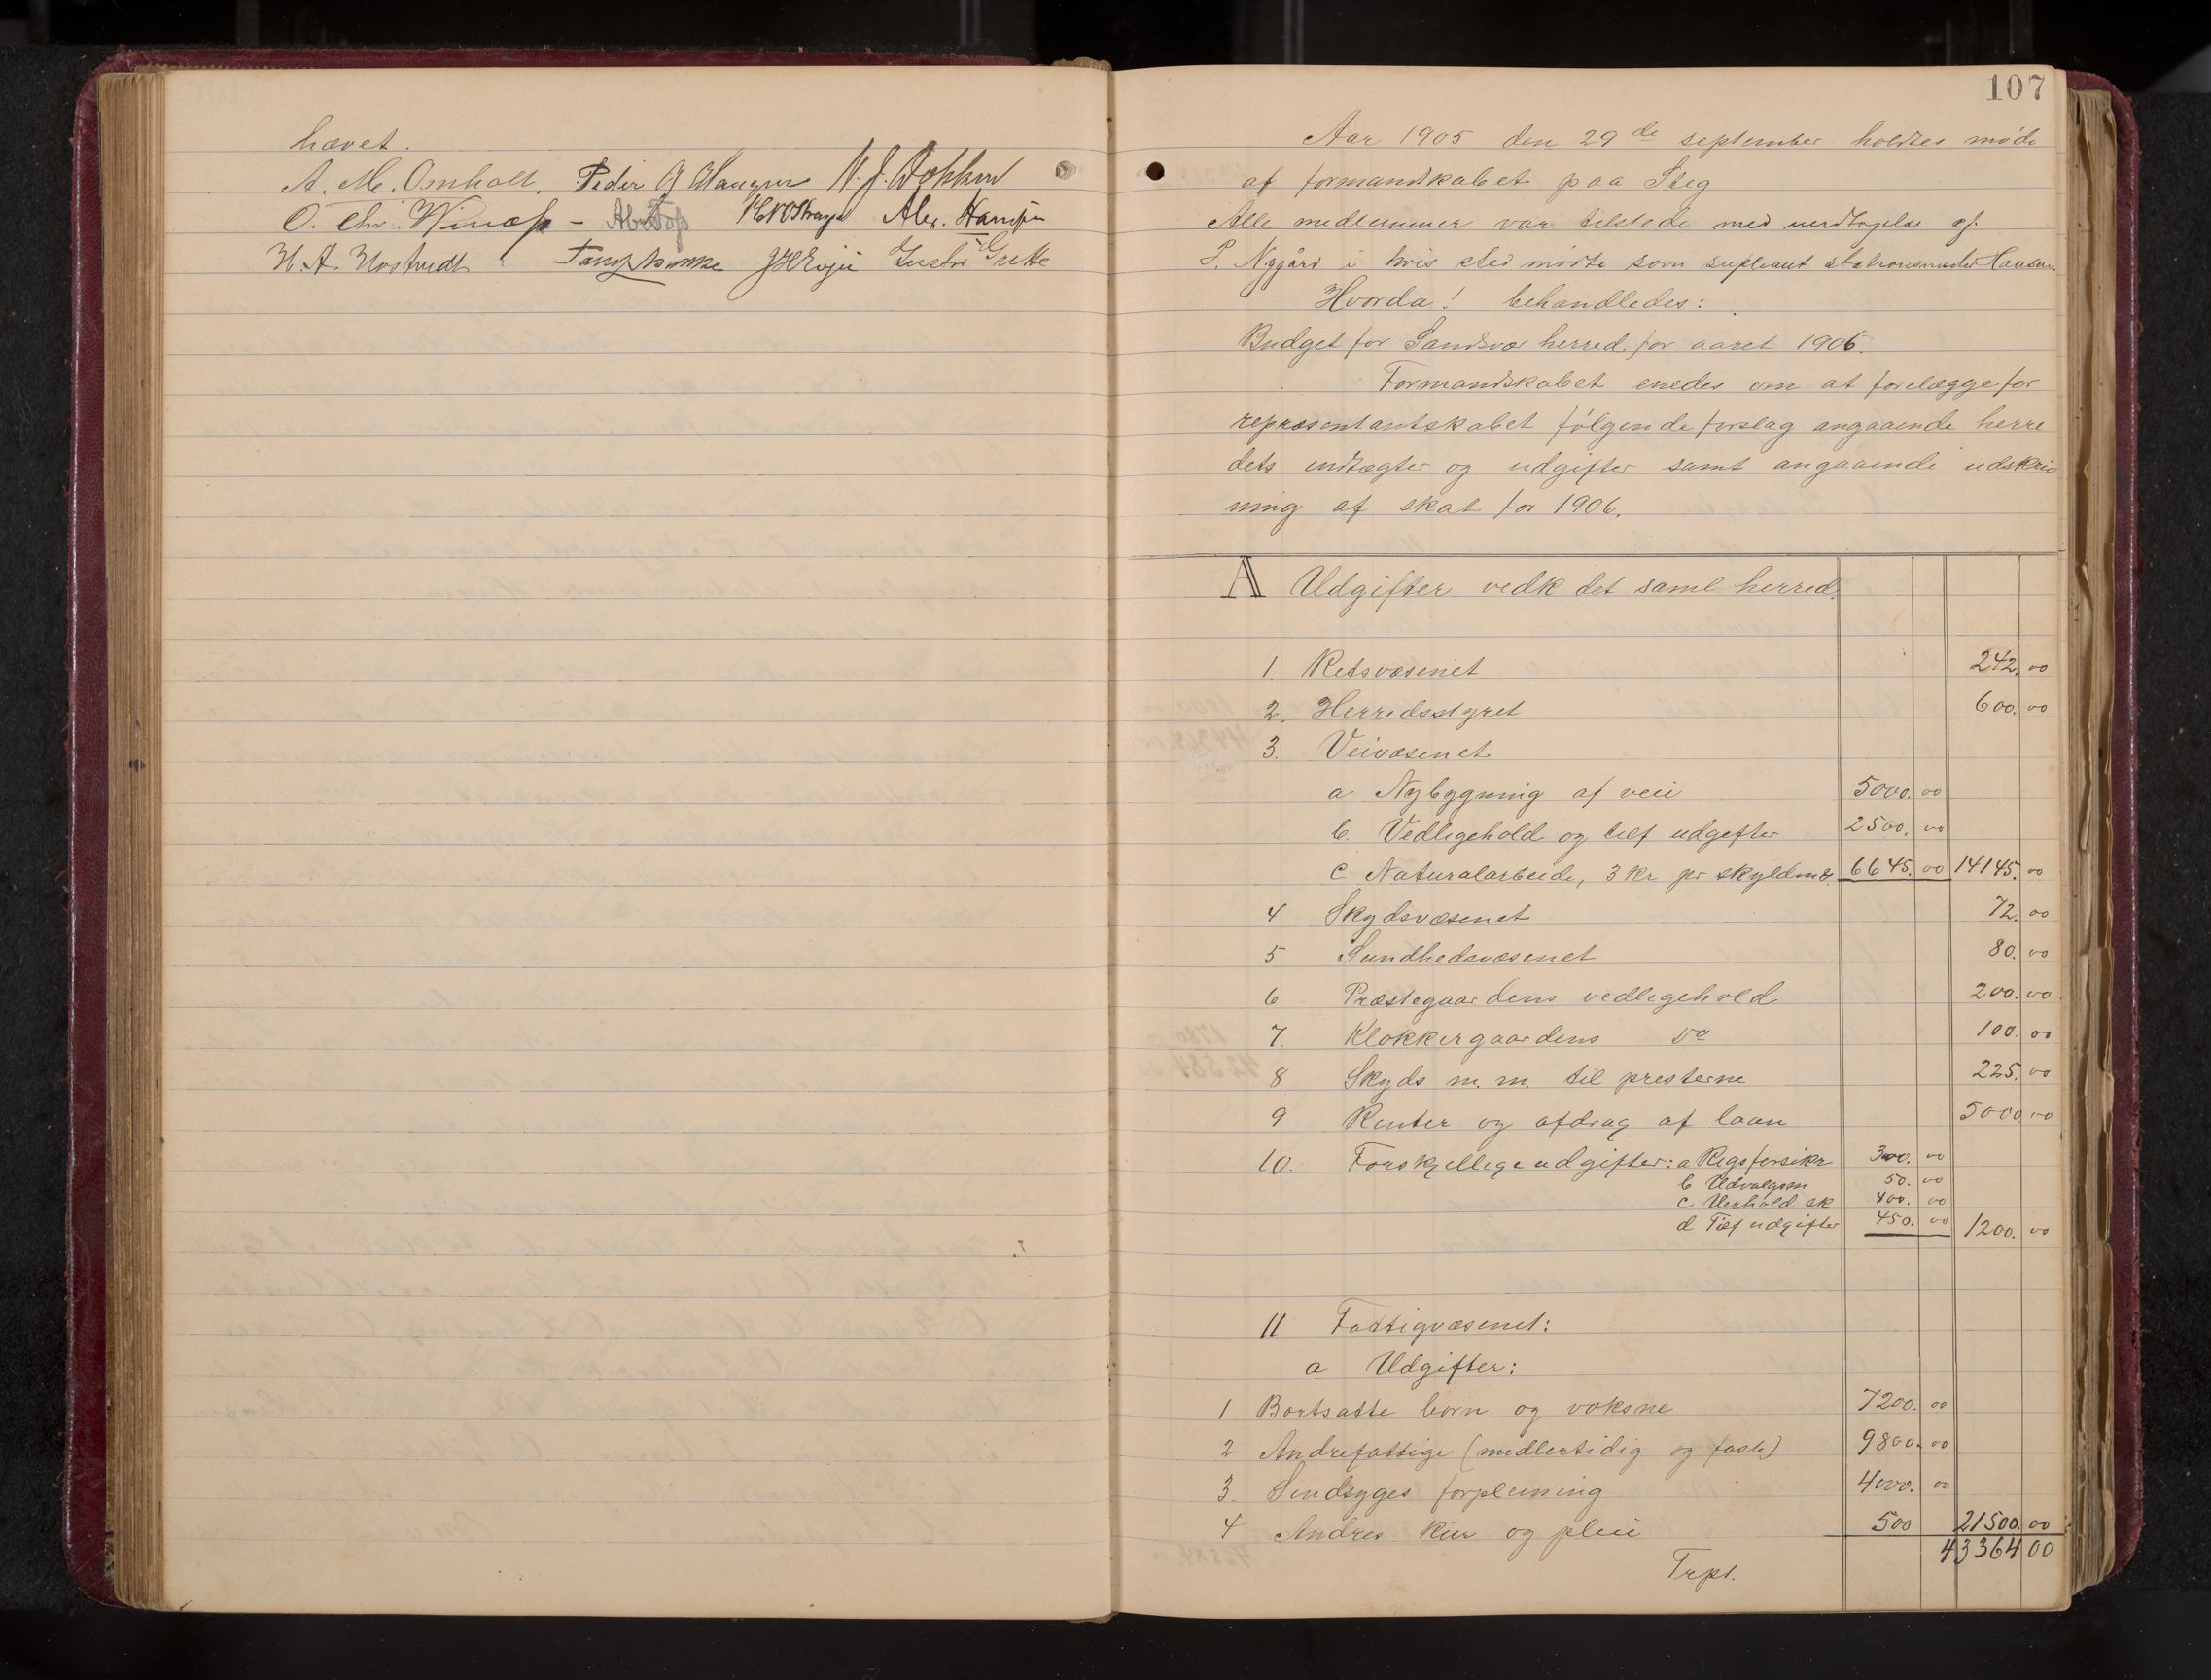 hævet.
A. M. Omholt. Peder A Haugen N. J. Dokken
O. Chr. Winæss - Alex. Hansen
H. A. Gustv Grette
107
Aar 1905 den 29de september holdtes møde
af formandskabet paa Steg
Alle medlemmer var tilstede med undtagelse af
P. Nygård i hvis sted mødte som supleant stationsmester Hansen.
Hvorda! behandledes:
Budget for Sandsvær herred for aaret 1906.
Formandskabet enedes om at forelægge for
repræsentantskabet følgende forslag angaaende herre
dets indtægter og udgifter samt angaaende udskriv
ning af skat for 1906.
A Udgifter vedk det saml herred.
1. Retsvæsenet 242.00
2. Herredsstyret 600.00
3. Veivæsenet
a Nybygning af veie 5000.00
b. Vedligehold og tilf udgifter 2500.00
c Naturalarbeide, 3 kr pr skyldm&. 6645.00 14145.00
4 Skydsvæsenet 72.00
5 Sundhedsvæsenet 80.00
6 Præstegaardens vedligehold 200.00
7. Klokkergaardens do 100.00
8 Skyds m. m. til presterne 225.00
9 Renter og afdrag af laan 5000.00
10. Forskjellige udgifter: a Regsforsikr 300.00
b Udvalgsm 50.00
c Verhold sk 400.00
d Tilf udgifter 450.00 1200.00
11 Fattigvæsenet:
a Udgifter:
1 Bortsatte børn og voksne 7200.00
2 Andre fattige (midlertidig og faste) 9800.00
3. Sindsyges forpleining 4000.00
4 Andres kur og pleie 500 21500.00
43364 00
Trpt.